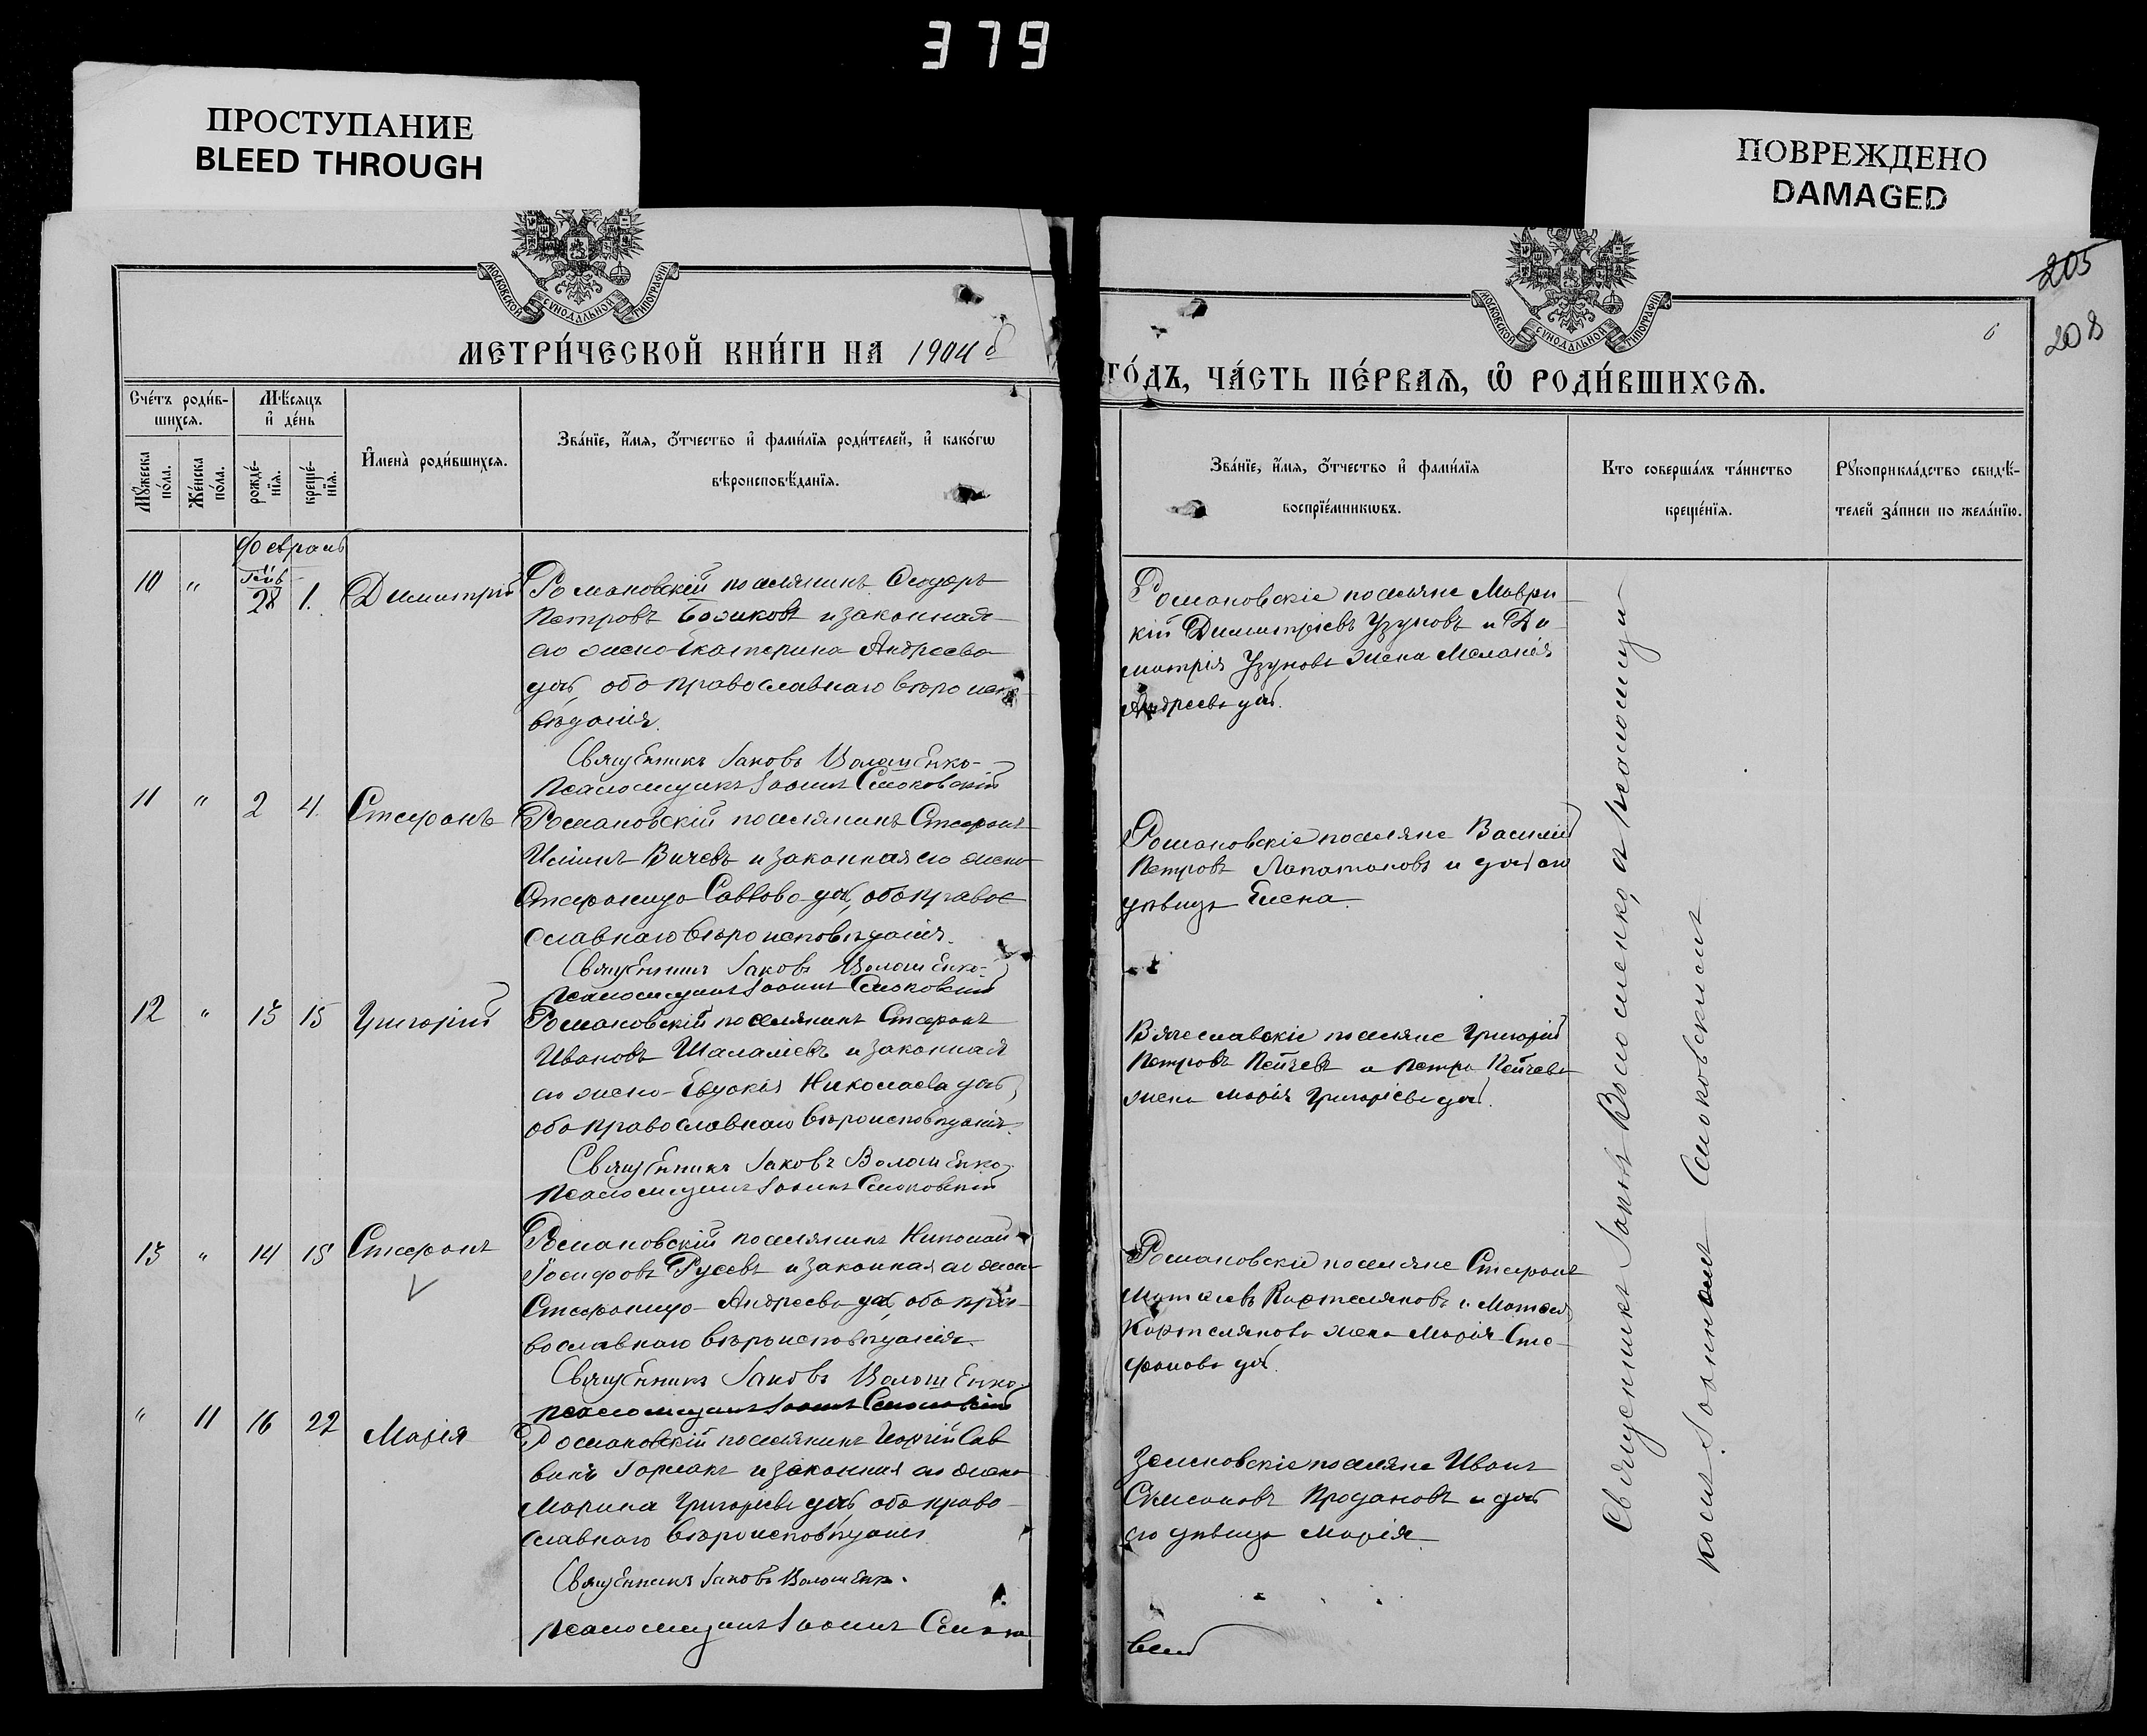 379
ПРОСТУПАНИЕ
BLEED THROUGH
ПОВРЕЖДЕНО
DAMAGED
МОСКОВСКОЙ СѴНОДАЛЬНОЙ ТИПОГРАФІИ
МОСКОВСКОЙ СѴНОДАЛЬНОЙ ТИПОГРАФІИ
205
208
6
МЕТРИ́ЧЕСКОЙ КНИ́ГИ НА 1904
ГО́ДЪ, ЧА́СТЬ ПЕ́РВАѦ, Ѡ҆ РОДИ́ВШИХСѦ.
Сче́тъ роди́в-
шихсѧ.
Мꙋ́жеска по́ла.
Же́нска по́ла.
Мѣ́сѧцъ
и҆ де́нь
рожде́-
нїѧ.
креще́-
нїѧ.
И҆мена̀ роди́вшихсѧ.
Зва́нїе, и҆́мѧ, ѻ҆́тчество и҆ фами́лїѧ роди́телей, и҆ како́гѡ
вѣроисповѣ́данїѧ.
Зва́нїе, и҆́мѧ, ѻ҆́тчество и҆ фами́лїѧ
воспрїе́мникѡвъ.
Кто соверша́лъ та́инство
креще́нїѧ.
Рꙋкоприкла́дство свидѣ́-
телей за́писи по жела́нїю.
Февраль
10 " Генв 28 1. Димитрій
Романовскій поселянинъ Ѳеодоръ
Петровъ Боликовъ и законная
его жена Екатерина Андреева
дочь, оба православнаго вѣроиспо-
вѣданія.
Священникъ Іаковъ Волошенко
Псаломщикъ Іоаннъ Смоковскій
Романовскіе поселяне Маври-
кій Димитріевъ Узуновъ и Ди-
митрія Узунова жена Меланія
Андреева дочь.
11 " 2 4. Стефанъ
Романовскій поселянинъ Стефанъ
Ильинъ Вичевъ и законная его жена
Стефанида Саввова дочь, оба право-
славнаго вѣроисповѣданія.
Священникъ Іаковъ Волошенко
Псаломщикъ Іоаннъ Смоковскій
Романовскіе поселяне Василій
Петровъ Лапатановъ и дочь его
дѣвица Елена.
12 " 13 15 Григорій
Романовскій поселянинъ Стефанъ
Ивановъ Шаламіевъ и законная
его жена Евдокія Николаева дочь,
оба православнаго вѣроисповѣданія.
Священникъ Іаковъ Волошенко
Псаломщикъ Іоаннъ Смоковскій
Вячеславскіе поселяне Григорій
Петровъ Пейчевъ и Петра Пейчева
жена Марія Григоріева дочь.
13 " 14 15 Стефанъ
Романовскій поселянинъ Николай
Іосифовъ Русевъ и законная его жена
Стефанида Андреева дочь, оба пра-
вославнаго вѣроисповѣданія.
Священникъ Іаковъ Волошенко
Псаломщикъ Іоаннъ Смоковскій
Романовскіе поселяне Стефанъ
Матѳеевъ Картеляновъ и Матѳея
Картелянова жена Марія Сте-
фанова дочь.
" 11 16 22 Марія
Романовскій поселянинъ Георгій Сав-
винъ и законная его жена
Марина Григоріева дочь, оба право-
славнаго вѣроисповѣданія
Священникъ Іаковъ Волошенко.
Псаломщикъ Іоаннъ Смоков-
скій
Зеленовскіе поселяне Иванъ
Симеоновъ Продановъ и дочь
его дѣвица Марія
Священникъ Іаковъ Волошенко, съ псаломщи-
комъ Іоанномъ Смоковскимъ